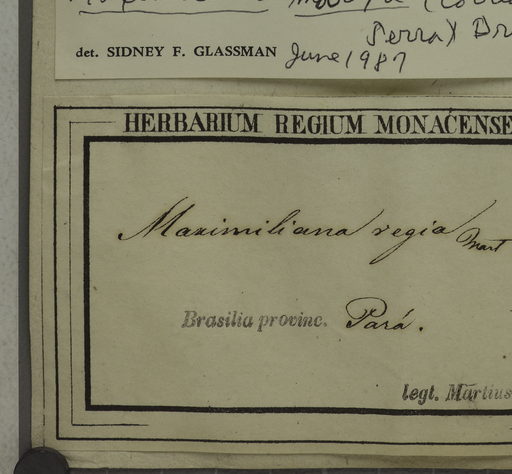 det. SIDNEY F. GLASSMAN June 1987
HERBARIUM REGIUM MONACENSE
Maximiliana regia Mart
Brasilia provinc. Pará.
legt. Martius